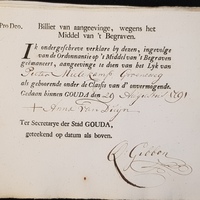 Pro Deo. Billiet van aangeevinge, wegens het
Middel van 't Begraven.
Ik ondergeschreve verklare by dezen, ingevolge
van de Ordonnantie op 't Middel van 't Begraven
geëmaneert, aangeevinge te doen van het Lyk van
Pieter
als gehoorende onder de Classis van d' onvermogende.
Gedaan binnen GOUDA den 29 1791
+ Anna van
Ter Secretarye der Stad GOUDA,
geteekend op datum als boven.